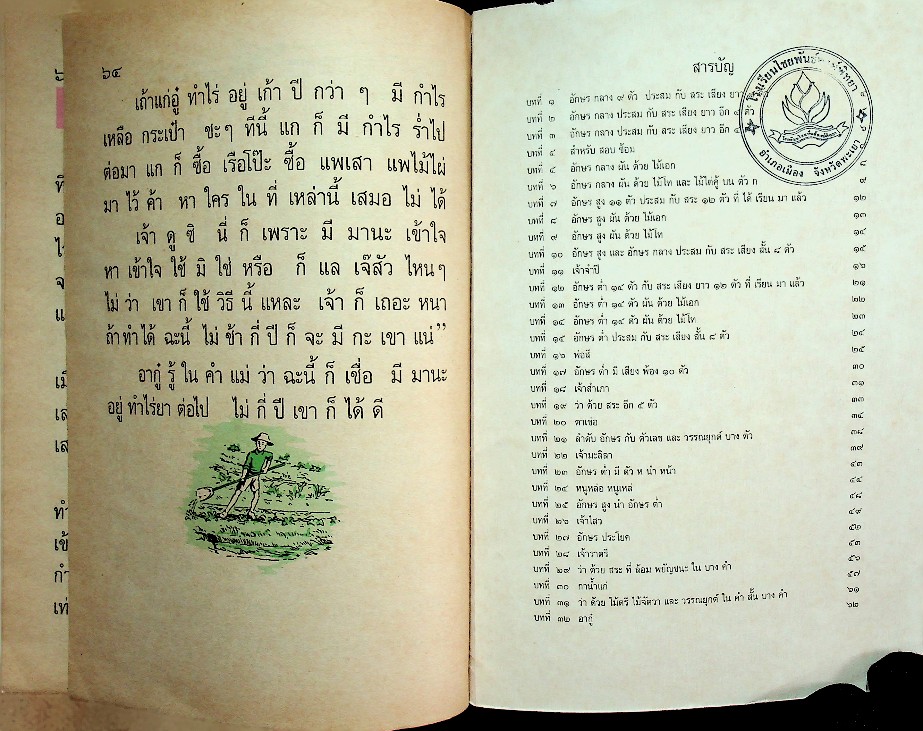 ๖๔
เถ้าแก่อู๋ ทำไร่ อยู่ เก้า ปี กว่า ๆ มี กำไร
เหลือ กระเป๋า ชะๆ ทีนี้ แก ก็ มี กำไร ร่ำไป
ต่อมา แก ก็ ซื้อ เรือโป๊ะ ซื้อ แพเสา แพไม้ไผ่
มา ไว้ ค้า หา ใคร ใน ที่ เหล่านี้ เสมอ ไม่ ได้
เจ้า ดู ซิ นี่ ก็ เพราะ มี มานะ เข้าใจ
หา เข้าใจ ใช้ มิ ใช่ หรือ ก็ แล เจ๊สัว ไหนๆ
ไม่ ว่า เขา ก็ ใช้ วิธี นี้ แหละ เจ้า ก็ เถอะ หนา
ถ้า ทำ ได้ ฉะนี้ ไม่ ช้า กี่ ปี ก็ จะ มี กะ เขา แน่”
อากู๋ รู้ ใน คำ แม่ ว่า ฉะนี้ ก็ เชื่อ มี มานะ
อยู่ ทำไร่ยา ต่อไป ไม่ กี่ ปี เขา ก็ ได้ ดี
สารบัญ
บทที่ ๑ อักษร กลาง ๙ ตัว ประสม กับ สระ เสียง ยาว
บทที่ ๒ อักษร กลาง ประสม กับ สระ เสียง ยาว อีก
บทที่ ๓ อักษร กลาง ประสม กับ สระ เสียง ยาว อีก
บทที่ ๔ สำหรับ สอบ ซ้อม
บทที่ ๕ อักษร กลาง ผัน ด้วย ไม้เอก
บทที่ ๖ อักษร กลาง ผัน ด้วย ไม้โท และ ไม้ไต่คู้ บน ตัว ก ๙
บทที่ ๗ อักษร สูง ๑๑ ตัว ประสม กับ สระ ๑๒ ตัว ที่ ได้ เรียน มา แล้ว ๑๒
บทที่ ๘ อักษร สูง ผัน ด้วย ไม้เอก ๑๓
บทที่ ๙ อักษร สูง ผัน ด้วย ไม้โท ๑๔
บทที่ ๑๐ อักษร สูง และ อักษร กลาง ประสม กับ สระ เสียง สั้น ๘ ตัว ๑๕
บทที่ ๑๑ เจ้าจำปี ๑๖
บทที่ ๑๒ อักษร ต่ำ ๑๔ ตัว กับ สระ เสียง ยาว ๑๒ ตัว ที่ เรียน มา แล้ว ๒๑
บทที่ ๑๓ อักษร ต่ำ ๑๔ ตัว ผัน ด้วย ไม้เอก ๒๒
บทที่ ๑๔ อักษร ต่ำ ๑๔ ตัว ผัน ด้วย ไม้โท ๒๓
บทที่ ๑๕ อักษร ต่ำ ประสม กับ สระ เสียง สั้น ๘ ตัว ๒๔
บทที่ ๑๖ พ่อสี ๒๕
บทที่ ๑๗ อักษร ต่ำ มี เสียง พ้อง ๑๐ ตัว ๓๐
บทที่ ๑๘ เจ้าสำเภา ๓๑
บทที่ ๑๙ ว่า ด้วย สระ อีก ๕ ตัว ๓๓
บทที่ ๒๐ ตาเขอ ๓๔
บทที่ ๒๑ ลำดับ อักษร กับ ตัวเลข และ วรรณยุกต์ บาง ตัว ๓๘
บทที่ ๒๒ เจ้ามะลิลา ๓๙
บทที่ ๒๓ อักษร ต่ำ มี ตัว ห นำ หน้า ๔๓
บทที่ ๒๔ หนูหล่อ หนูเหล่ ๔๔
บทที่ ๒๕ อักษร สูง นำ อักษร ต่ำ ๔๘
บทที่ ๒๖ เจ้าไสว ๔๙
บทที่ ๒๗ อักษร ประโยค ๕๒
บทที่ ๒๘ เจ้าราตรี ๕๓
บทที่ ๒๙ ว่า ด้วย สระ ที่ ล้อม พยัญชนะ ใน บาง คำ ๕๖
บทที่ ๓๐ กาน้ำแก่ ๕๗
บทที่ ๓๑ ว่า ด้วย ไม้ตรี ไม้จัตวา และ วรรณยุกต์ ใน คำ สั้น บาง คำ ๖๑
บทที่ ๓๒ อากู๋ ๖๒
อำเภอเมือง จังหวัดพะเยา